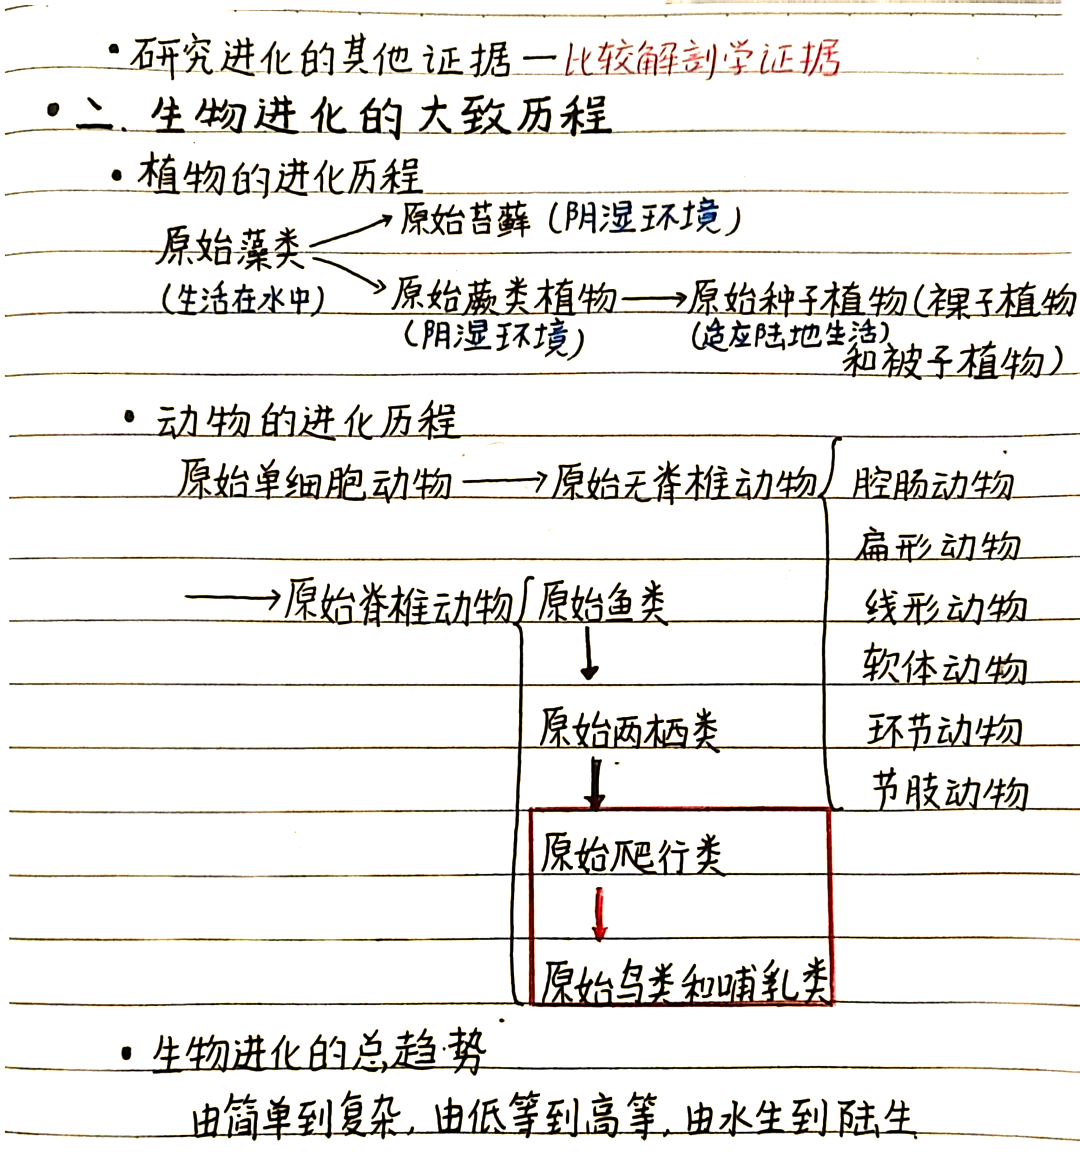 ·研究进化的其他证据—比较解剖学证据
·二.生物进化的大致历程
·植物的进化历程
原始苔藓(阴湿环境)
原始藻类
(生活在水中)
原始蕨类植物→原始种子植物(裸子植物
(阴湿环境) (适应陆地生活)
和被子植物)
·动物的进化历程
原始单细胞动物→原始无脊椎动物{腔肠动物
扁形动物
→原始脊椎动物{原始鱼类 线形动物
↓ 软体动物
原始两栖类 环节动物
↓ 节肢动物
原始爬行类
↓
原始鸟类和哺乳类
·生物进化的总趋势
由简单到复杂,由低等到高等,由水生到陆生